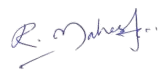 R. Mahesh